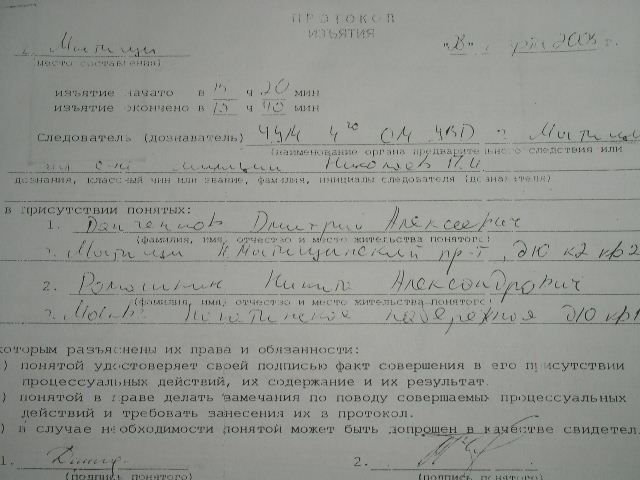 ПРОТОКОЛ
ИЗЪЯТИЯ
г. Мытищи
"28" 2003 г.
(место составления)
изъятие начато в 15 ч 20 мин
изъятие окончено в 15 ч 40 мин
Следователь (дознаватель) УУМ 4го ОМ УВД г. Мытищи
(наименование органа предварительного следствия или
милиции Николаев И.И
дознания, классный чин или звание, фамилия, инициалы следователя (дознавателя)
в присутствии понятых:
1. Дмитрий Алексеевич
(фамилия, имя, отчество и место жительства понятого)
г. Мытищи Н.Мытищинский пр-т, д10 к2 кв2
2. Ромашкин Никита Александрович
(фамилия, имя, отчество и место жительства понятого)
г. Нагатинская набережная д10 кв1
которым разъяснены их права и обязанности:
) понятой удостоверяет своей подписью факт совершения в его присутствии
процессуальных действий, их содержание и их результат.
) понятой в праве делать замечания по поводу совершаемых процессуальных
действий и требовать занесения их в протокол.
) в случае необходимости понятой может быть допрошен в качестве свидетел
1. 2.
(подпись понятого) (подпись понятого)